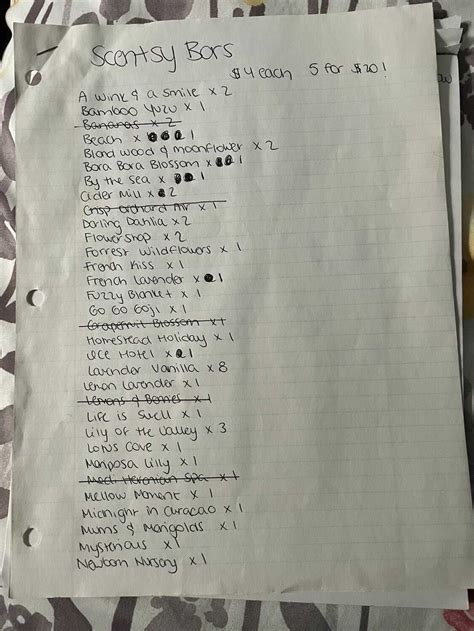 Scentsy Bars
$4 each 5 for $20!
A wink & a smile x 2
Bamboo Yuzu x 1
Bananas x 2
Beach x 1
Blond wood & moonflower x 2
Bora Bora Blossom x 1
By the sea x 1
Cider Mill x 2
Crisp Orchard Air x 1
Darling Dahlia x 2
Flower shop x 2
Forrest wildflowers x 1
French Kiss x 1
French Lavender x 1
Fuzzy Blanket x 1
Go Go Goji x 1
Grapefruit Blossom x 1
Homestead Holiday x 1
Ice Hotel x 1
Lavender Vanilla x 8
Lemon Lavender x 1
Lemons & Berries x 1
Life is Swell x 1
Lily of the Valley x 3
Lotus Cove x 1
Mariposa Lilly x 1
Medi Spa x 1
Mellow Moment x 1
Midnight in Curacao x 1
Mums & Marigolds x 1
Mysterious x 1
Newborn Nursery x 1